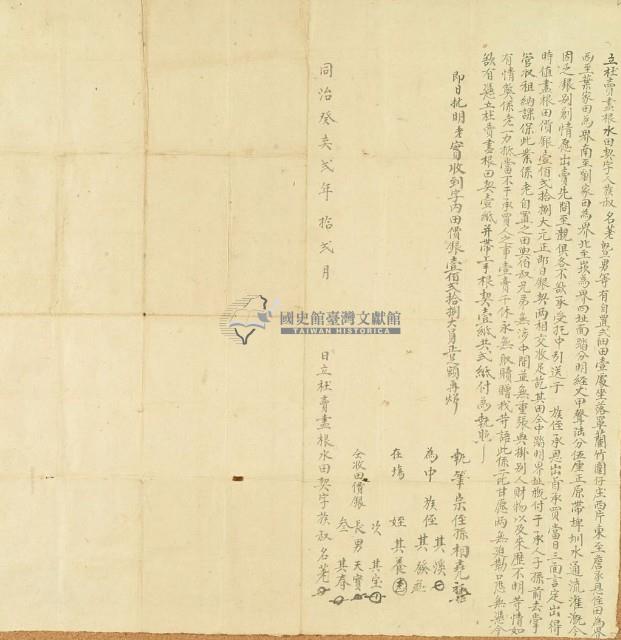 立杜賣盡根水田契字人族叔名茗暨男等有自置式田壹處坐落罩蘭竹圍仔庄西片東至詹家恩佳田為界
西至葉家田為界南至劉家田為界北至崁為界四址面踏分明經丈甲聲伍分伍厘正原帶埤圳水通流灌溉今
因乏銀別創情愿出賣先問至親俱各不欲承受托中引送于族侄承恩出首承買當日三面言定出得
時值盡根田價銀壹佰弍拾捌大元正即日銀契兩相交收足訖其田仝中踏明界址概付于承人子孫前去掌
管收租納課保此業係老自置之田與伯叔兄弟無涉中間並無重張典掛別人財物以及來歷不明等情如
有情弊係老一力抵當不干承買人之事壹賣千休永無取贖增找等語此係二比甘愿兩無迫勒口恐無憑今
欲有憑立杜賣盡根田契壹紙并帶上手根契壹紙共弍紙付為執照
即日批明老實收到字內田價銀壹佰弍拾捌大員正足願再炤
執筆宗侄孫相堯
為中族侄其漢
其發
在塲姪其養
仝收田價銀
次其宝
長男天寶
叁其春
同治癸亥弍年拾弍月 日立杜賣盡根水田契字族叔名茗
國史館臺灣文獻館
TAIWAN HISTORICA